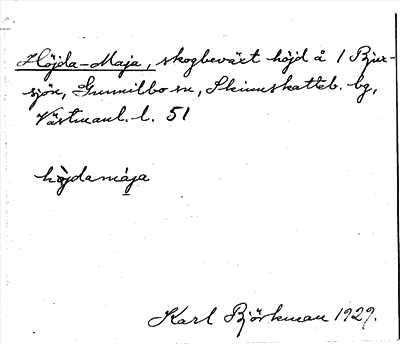 Höjda-Maja, skogbeväxt höjd å 1 Bjur-
sjön, Gunnilbo sn, Skinnskatteb. bg,
Västmanl. l. 51
hö̀jdamája
Karl Björkman 1929.